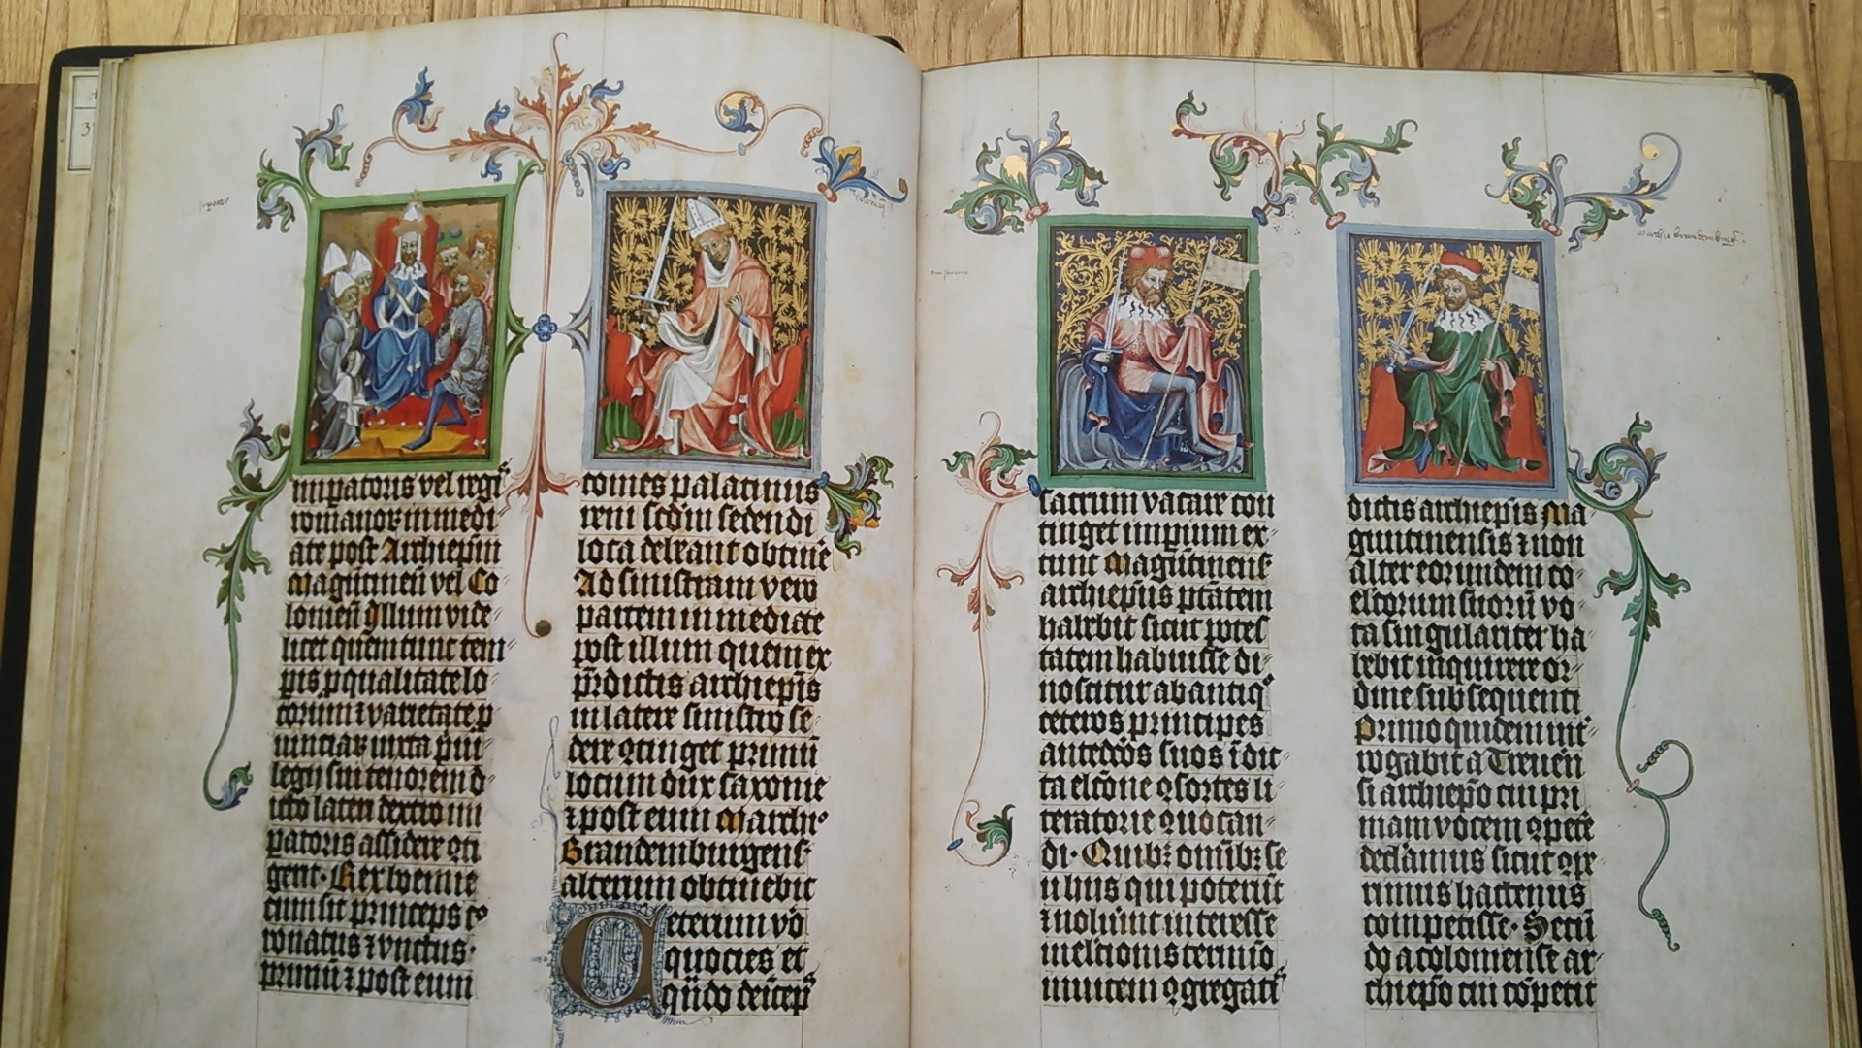 imp̄atoris vel regꝭ
romanoꝝ in medi-
ate post Archiep̄m
magūtineñ vel Co
lonieñ Illum vide-
licet quem tunc tem-
pis p qualitate lo-
corum ⁊ varietate p
uinciaꝝ iuxta p̄ui-
legii sui tenorem d-
icto lateri dextro im
patoris assidere ꝯti
gerit. Rex boemie
cum sit princeps co
ronatus ⁊ vnctus.
primū ⁊ post eum
comes palatinus
reni scd̄m sedendi
loca debeant obtine
Ad sinistram vero
partem inmediate
post illum quem ex
p̄dictis archiep̄is
in latere sinistro se-
dere ꝯtinget primū
locum dux saxonie
⁊ post eum Marchio
Brandemburgenẜ
alterum obtinebit
Ceterum vo
quocies et
qn̄do deincep̄s
sacrum vacare con
tinget imperium ex-
tunc Magūtinenẜ
archiep̄us p̄tātem
habebit sicut potes
tatem habuisse di-
noscitur ab antiqꝰ
ceteros principes
antedc̄os suos ī dic-
ta elc̄one ꝯsortes li-
teratorie ꝯuocan-
di. Quibꝫ om̄ibꝫ se
u hiis qui poterūt
⁊ voluerint interesse
in elcionis termino
inuicem ꝯgregatꝭ
dictis archiep̄is Ma
guntinensis ⁊ non
alter eorundem co-
elc̄torum suorū vo-
ta singulariter ha-
bebit inquirere or-
dine subsequenti
Primo quidem int̄-
rogabit a Treuen̄
si archiep̄o cui pri
mam vocem ꝯpete
declaramus sicut ꝯpe
rimus hactenus
competisse. Secū
do a coloniense ar-
chiep̄o cui cōpetit